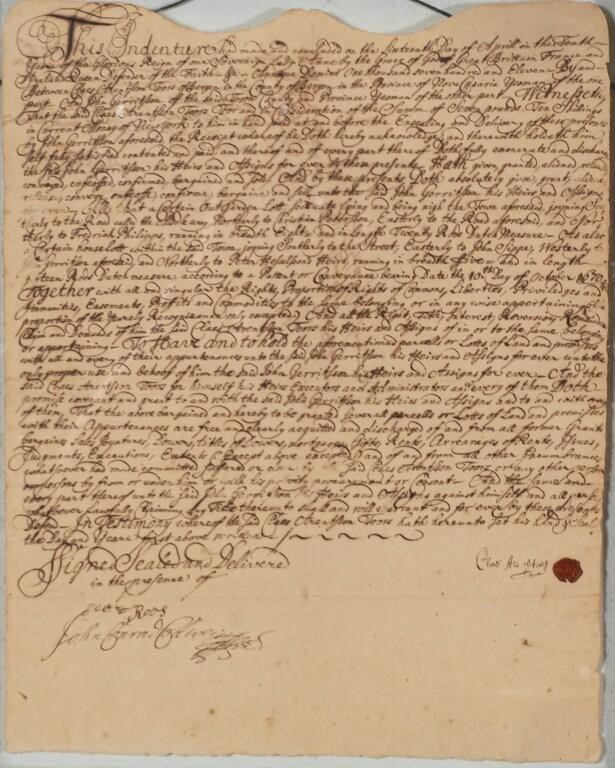 This Indenture had made and concluded on the Sixteenth Day of Aprill in the Tenth
Yeare of the Glorious Reign of our Sovereign Lady Anne by the Grace of God of Great Brittain France and
Ireland Queen Defender of the Faith &c Annoque Domini One thousand seven hundred and Eleven By and
Between Claes Arentson Toors of Bergen in the County of Bergen in the Province of Nova Cæsaria Yeoman of the one
part And John Gerritson of the said Town County and Province Yeoman of the other part Witnesseth
that the said Claes Arentson Toors for and in Consideration of the Summ of Seven pounds Ten Shillings
in Current Money of New York to him in hand paid at and before the Ensealing and Delivery of these presents
by John Gerritson aforesaid, the Receipt whereof he Doth hereby acknowledge and therewith holdeth him
self fully satisfied contented and paid and thereof and of every part thereof Doth fully exonerate and discharge
the said John Gerritson his Heirs and Assigns for ever by these presents Hath given granted aliened
conveyed, enfeoffed, confirmed, bargained and sold And by these presents Doth absolutely give, grant, alien
convey, enfeoffe, confirme, bargaine and sell unto the said John Gerritson his Heirs and Assigns
that a Certain Out Garden Lott Scituate lying and being nigh the Town aforesaid, joyning
to the Road Northerly to Christian Peterson, Easterly to the Road aforesaid, and
to Fredrick Philipse, running in breadth Eight, and in length Twenty Rods Dutch Measure As also
a Certain house lott within the said Town, joyning Southerly to the Street, Easterly to John Sippe, Westerly to
Gerritson aforesaid, and Northerly to Peter Hesselsons Heirs, running in breadth five and in length
Rods Dutch measure according to a Patent or Conveyance bearing Date the 10th Day of October 1670
Together with all and singular the Rights, Proportion of Rights of Comons, Liberties, Priviledges and
Immunities, Easements, Profitts and Comodities to the same belonging or in any wise appertaining
proportion of the Yearely Recognizance only excepted) And all the Right, Title, Interest, Reversion,
Claim and Demands of him the said Claes Arentson Toors his Heirs and Assigns of in or to the same belonging
or appertaining To Have and to hold the aforementioned parcells or Lotts of Land and premises
with all and every of their appurtenances unto the said John Gerritson his Heirs and Assigns for ever unto the
only proper use and Behoof of him the said John Gerritson his Heirs and Assigns for ever And the
said Claes Arentson Toors for himself his Heirs Executors and Administrators and every of them Doth
promise covenant and grant to and with the said John Gerritson his Heirs and Assigns and to and with every
of them, That the above bargained and hereby to be granted severall parcells or Lotts of Land and premises
with their Appurtenances are free and clearly acquitted and discharged of and from all former Grants
bargaines Sales Joyntures, Dowers, titles of Dowers, mortgages, Gifts, Rents, Arrearages of Rents, Issues,
Judgments, Executions, Extents (Except above excepted) and of any from all other Encumbrances
whatsoever had made committed suffered or done by said Claes Arentson Toors or any other person
or persons by from or under him or with his privity procurement or Consent And the same and
every part thereof unto the said John Gerritson his Heirs and Assigns against himself and all persons
whatsoever lawfully claiming any Title thereunto shall and will warrant and for ever by these presents
Defend In Testimony whereof the said Claes Arentson Toors hath hereunto set his Hand & Seal
the Day and Yeare first above written
Signed Sealed and Delivered
in the presence of
Claes
Roos
John Conrad